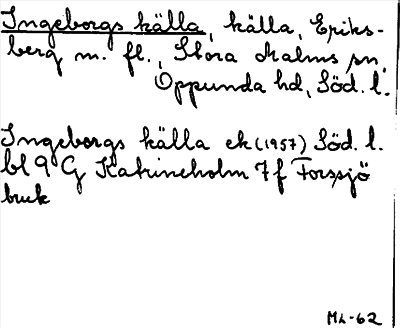 Ingeborgs källa, källa, Eriks-
berg m. fl., Stora Malms sn,
Oppunda hd, Söd. l.
Ingeborgs källa ek (1957) Söd. l.
bl 9 G Katrineholm 7 f Forssjö
bruk
ML-62